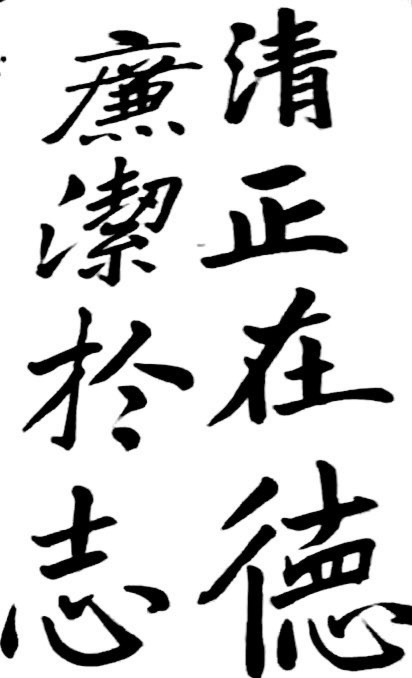 清正在德
廉潔於志